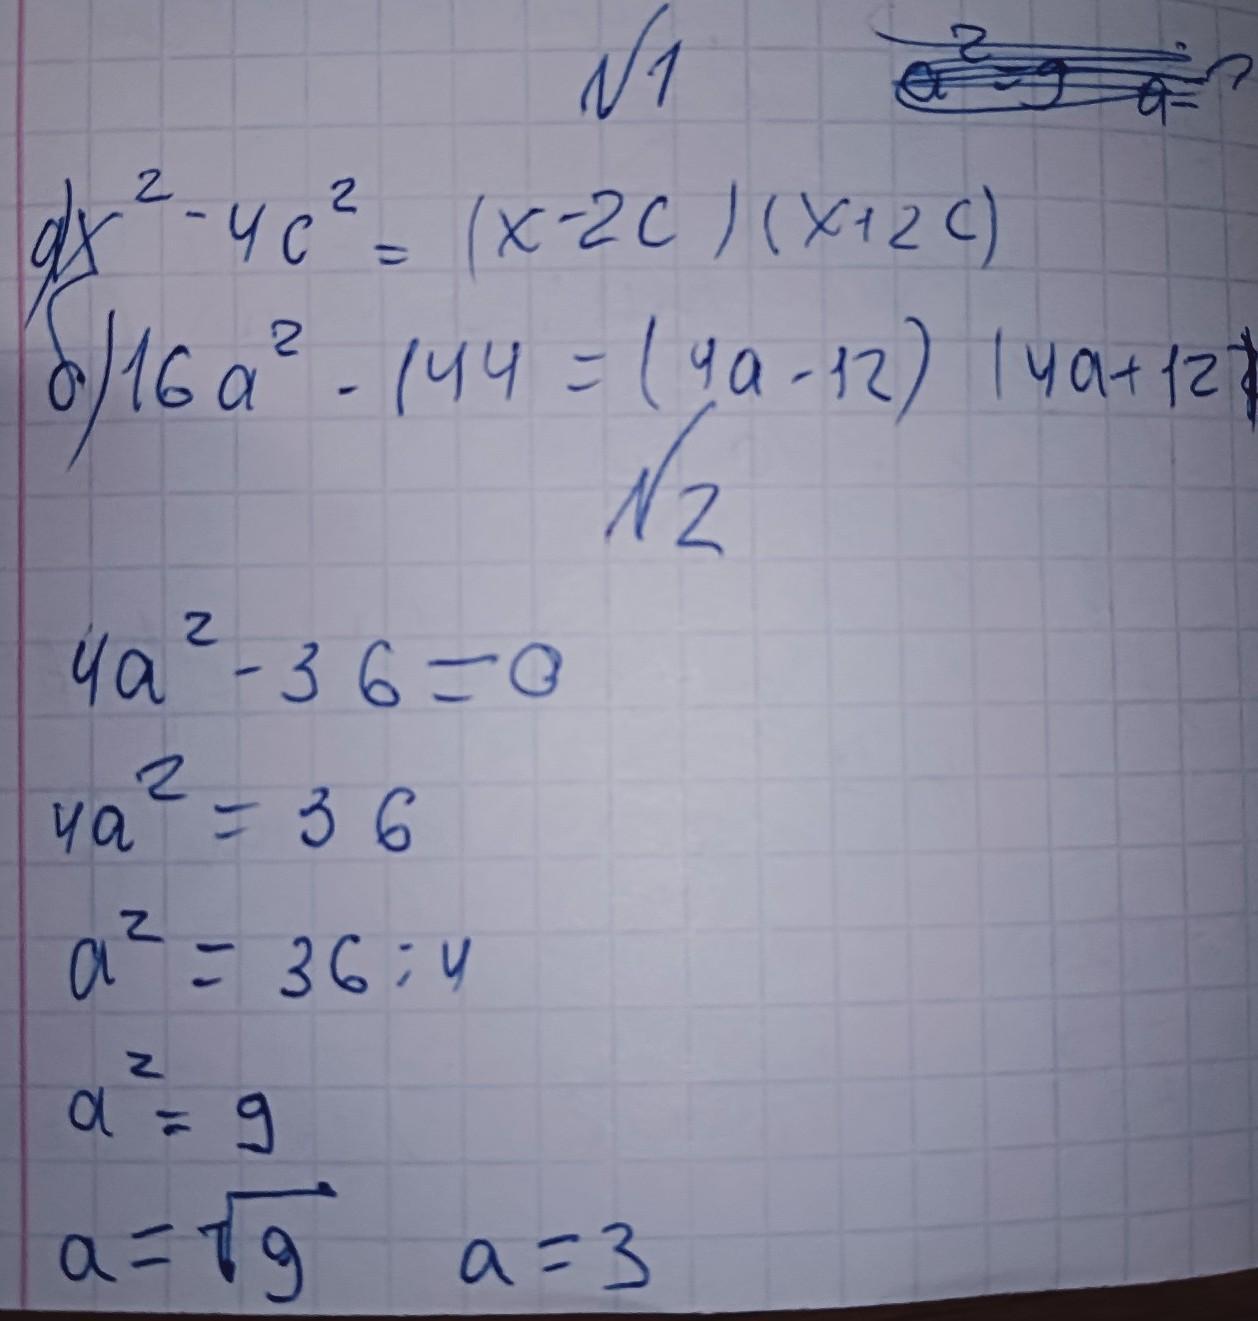 №1
а) x² - 4c² = (x - 2c) (x + 2c)
б) 16a² - 144 = (4a - 12) (4a + 12)
№2
4a² - 36 = 0
4a² = 36
a² = 36 : 4
a² = 9
a = √9 a = 3